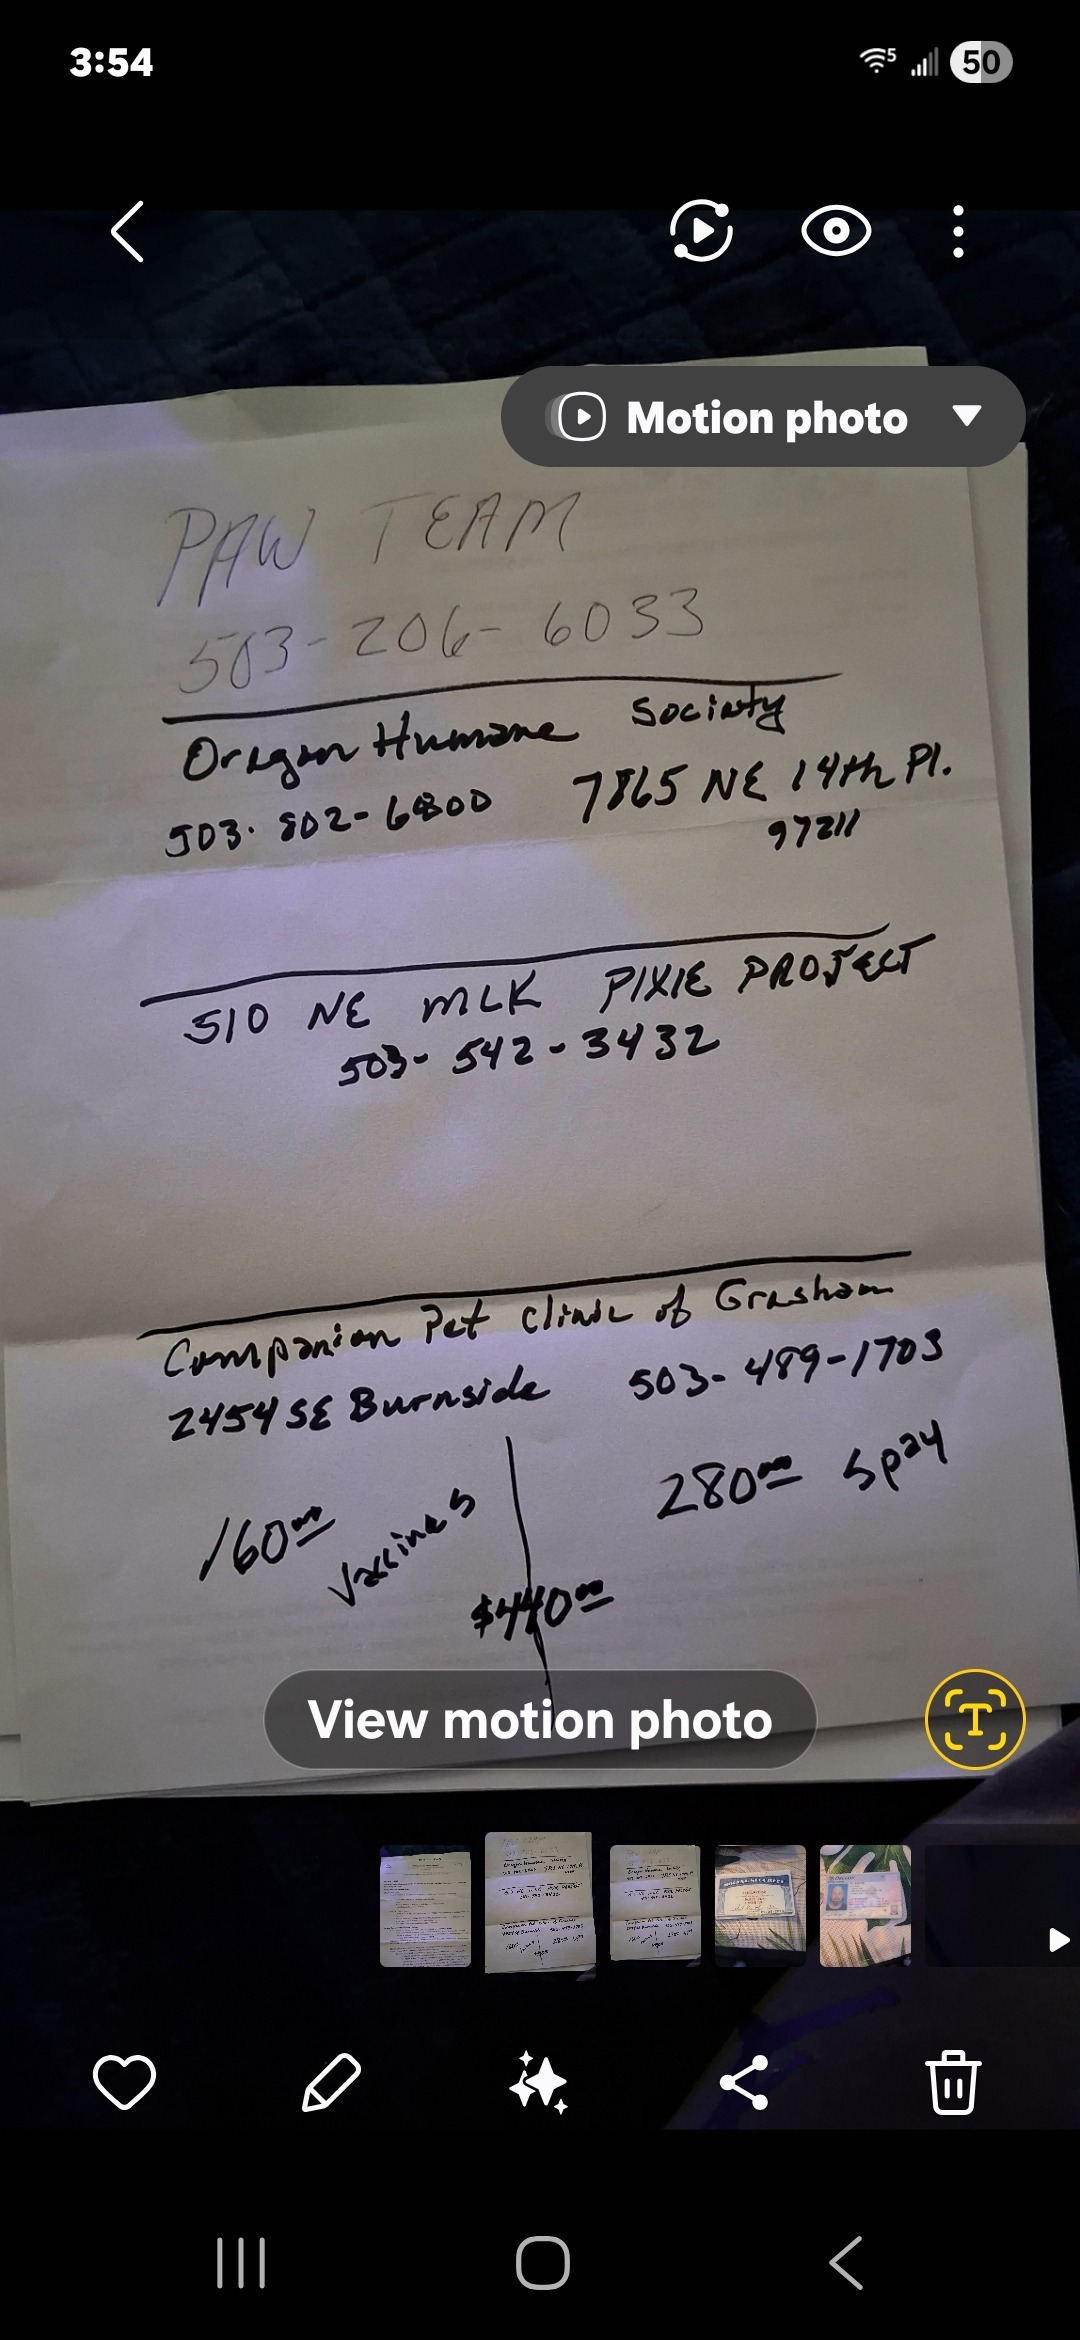 3:54
5
50
Motion photo
PAW TEAM
503-206-6033
Oregon Humane Society
503. 802-6800 7865 NE 14th Pl.
97211
510 NE MLK PIXIE PROJECT
503-542-3432
Companion Pet Clinic of Gresham
2454 SE Burnside 503-489-1703
160.00 Vaccines
280.00 Spay
$440.00
View motion photo
T